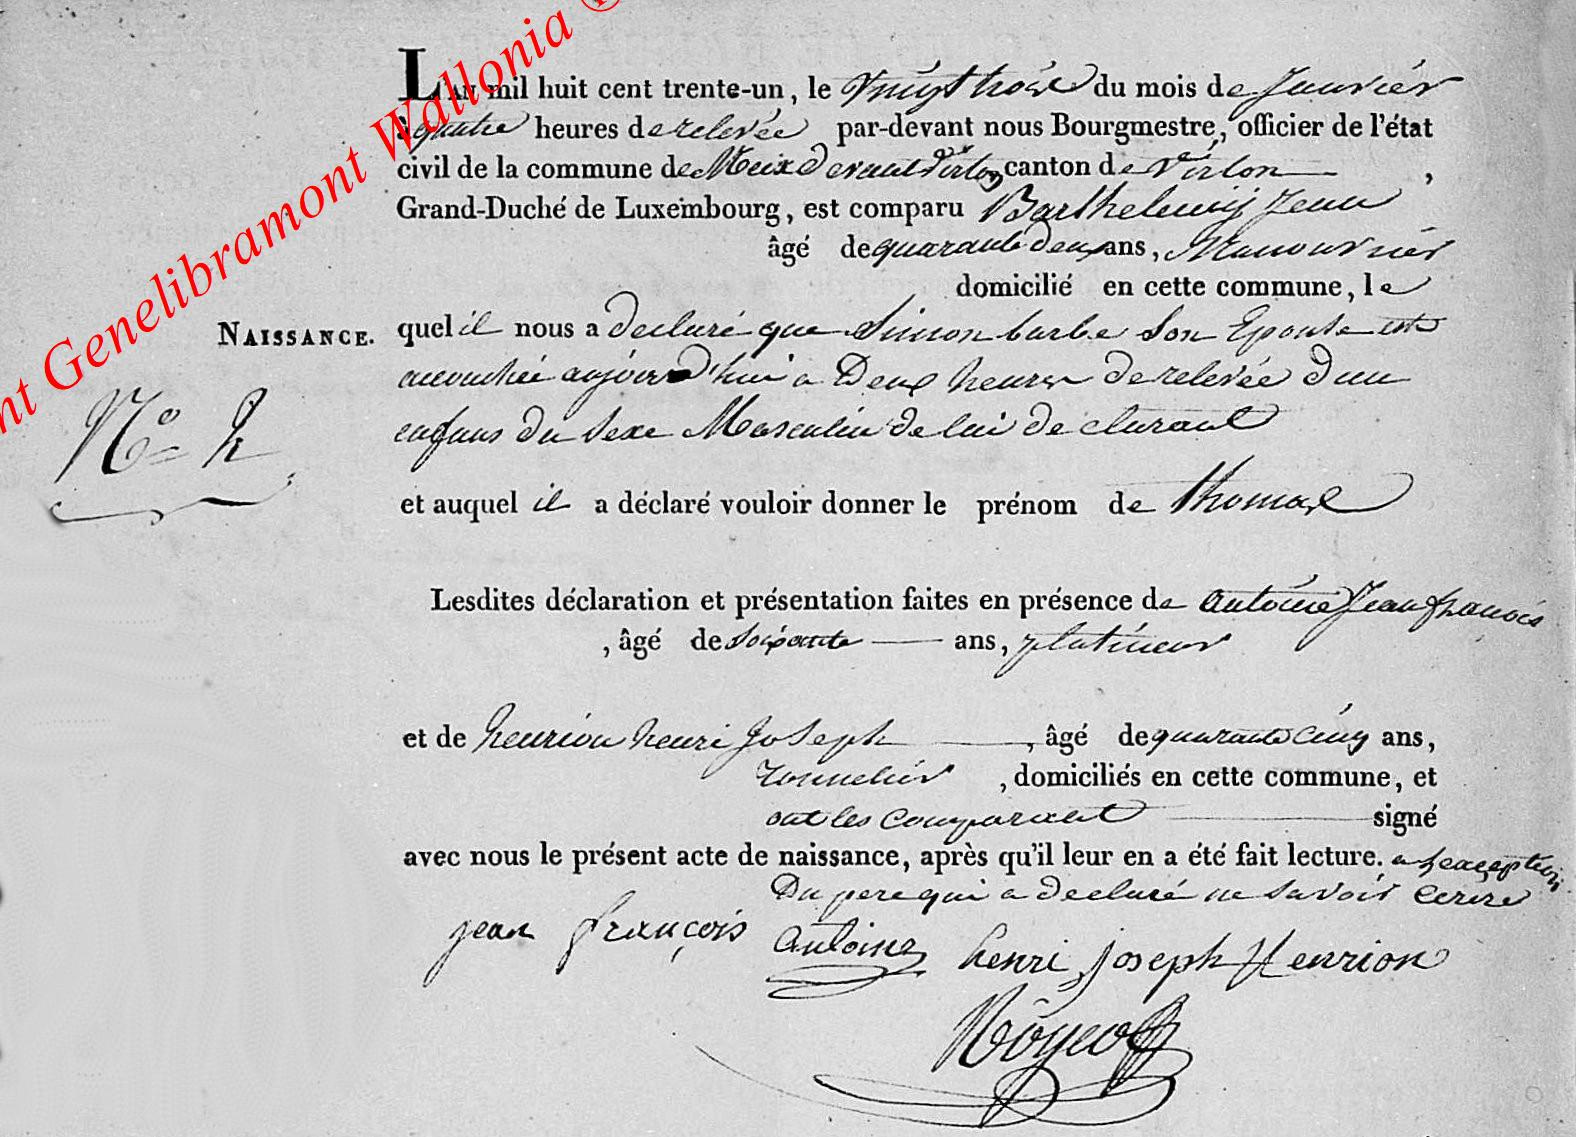 nt Genelibramont Wallonia ©
L'AN mil huit cent trente-un, le vingt trois du mois de Janvier
à quatre heures de relevée par-devant nous Bourgmestre, officier de l'état
civil de la commune de Meix devant Virton canton de Virton ,
Grand-Duché de Luxembourg, est comparu Barthelemy Jean
âgé de quarante deux ans, Manouvrier
domicilié en cette commune, le
NAISSANCE.
quel il nous a déclaré que Simon barbe Son Epouse est
accouchée aujourd'hui a Deux heures de relevée d'un
enfans du Sexe Masculin de lui declarant
N°
et auquel il a déclaré vouloir donner le prénom de Thomas
Lesdites déclaration et présentation faites en présence de Antoine Jean françois
, âgé de Soixante ans, platineur
et de henrion henri Joseph , âgé de quarante cinq ans,
tonnelier , domiciliés en cette commune, et
ont les Comparant signé
avec nous le présent acte de naissance, après qu'il leur en a été fait lecture. a l'exception
Du pere qui a declaré ne Savoir Ecrire
jean françois Antoine henri joseph Henrion